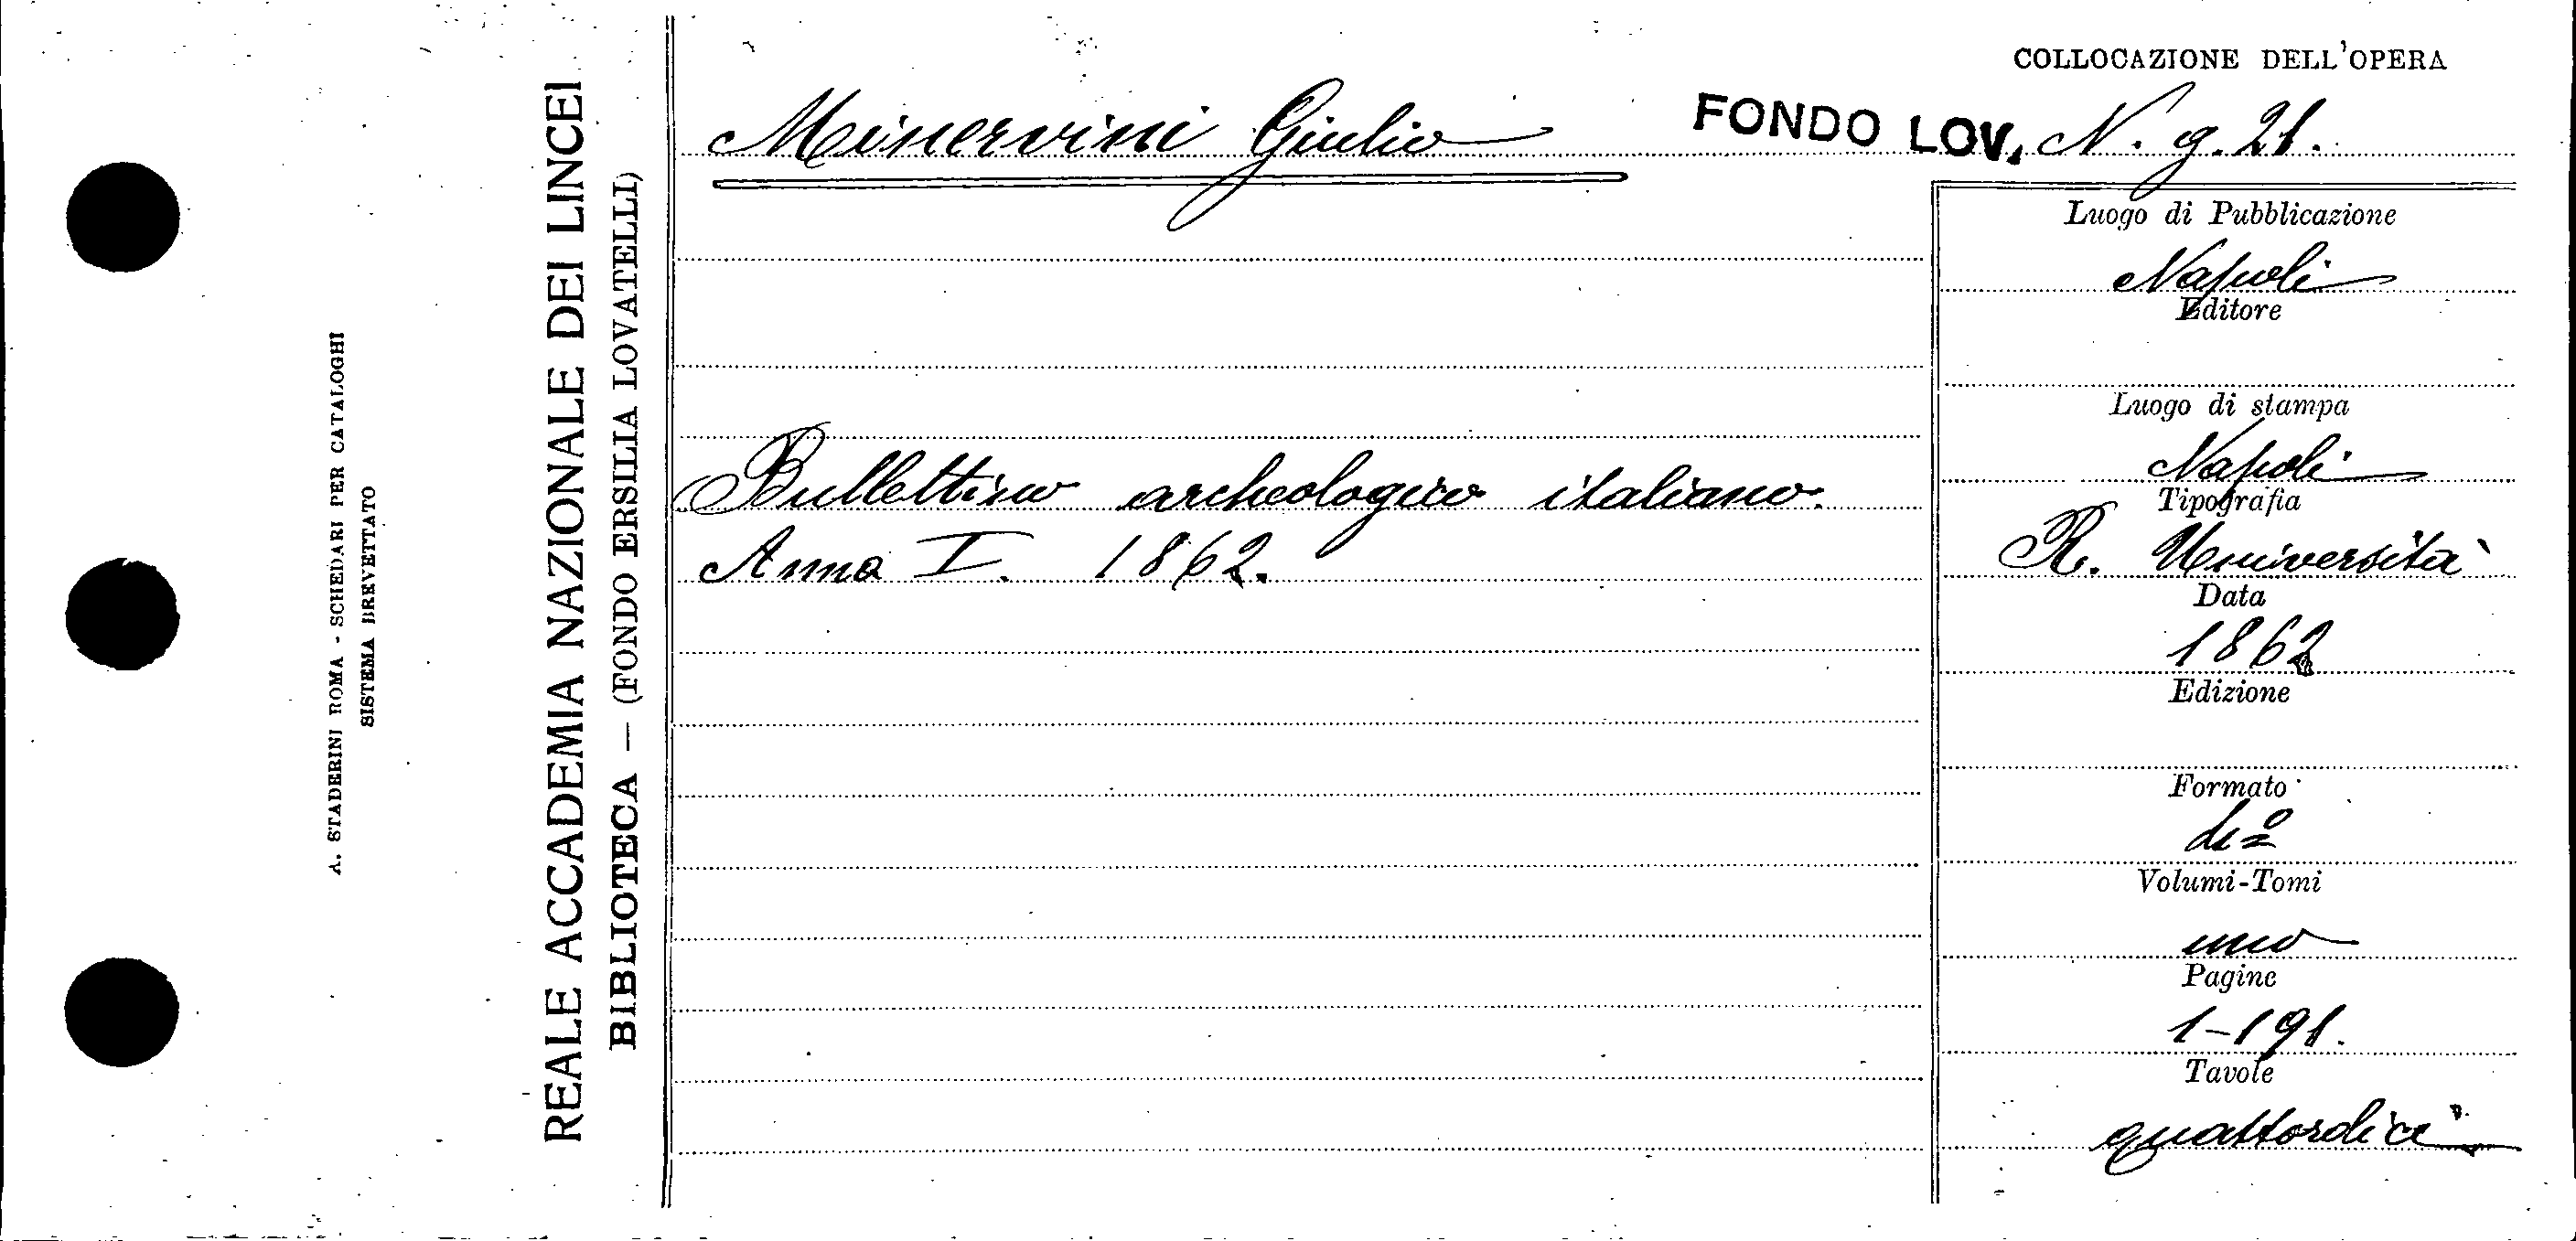 A. STADERINI ROMA - SCHEDARI PER CATALOGHI
SISTEMA BREVETTATO
REALE ACCADEMIA NAZIONALE DEI LINCEI
BIBLIOTECA — (FONDO ERSILIA LOVATELLI)
COLLOCAZIONE DELL'OPERA
Minervini Giulio FONDO LOV. N. g. 21.
Bullettino archeologico italiano.
Anno I. 1862.
Luogo di Pubblicazione
Napoli
Editore
Luogo di stampa
Napoli
Tipografia
R. Università
Data
1862
Edizione
Formato
Volumi-Tomi
uno
Pagine
1-191.
Tavole
quattordici